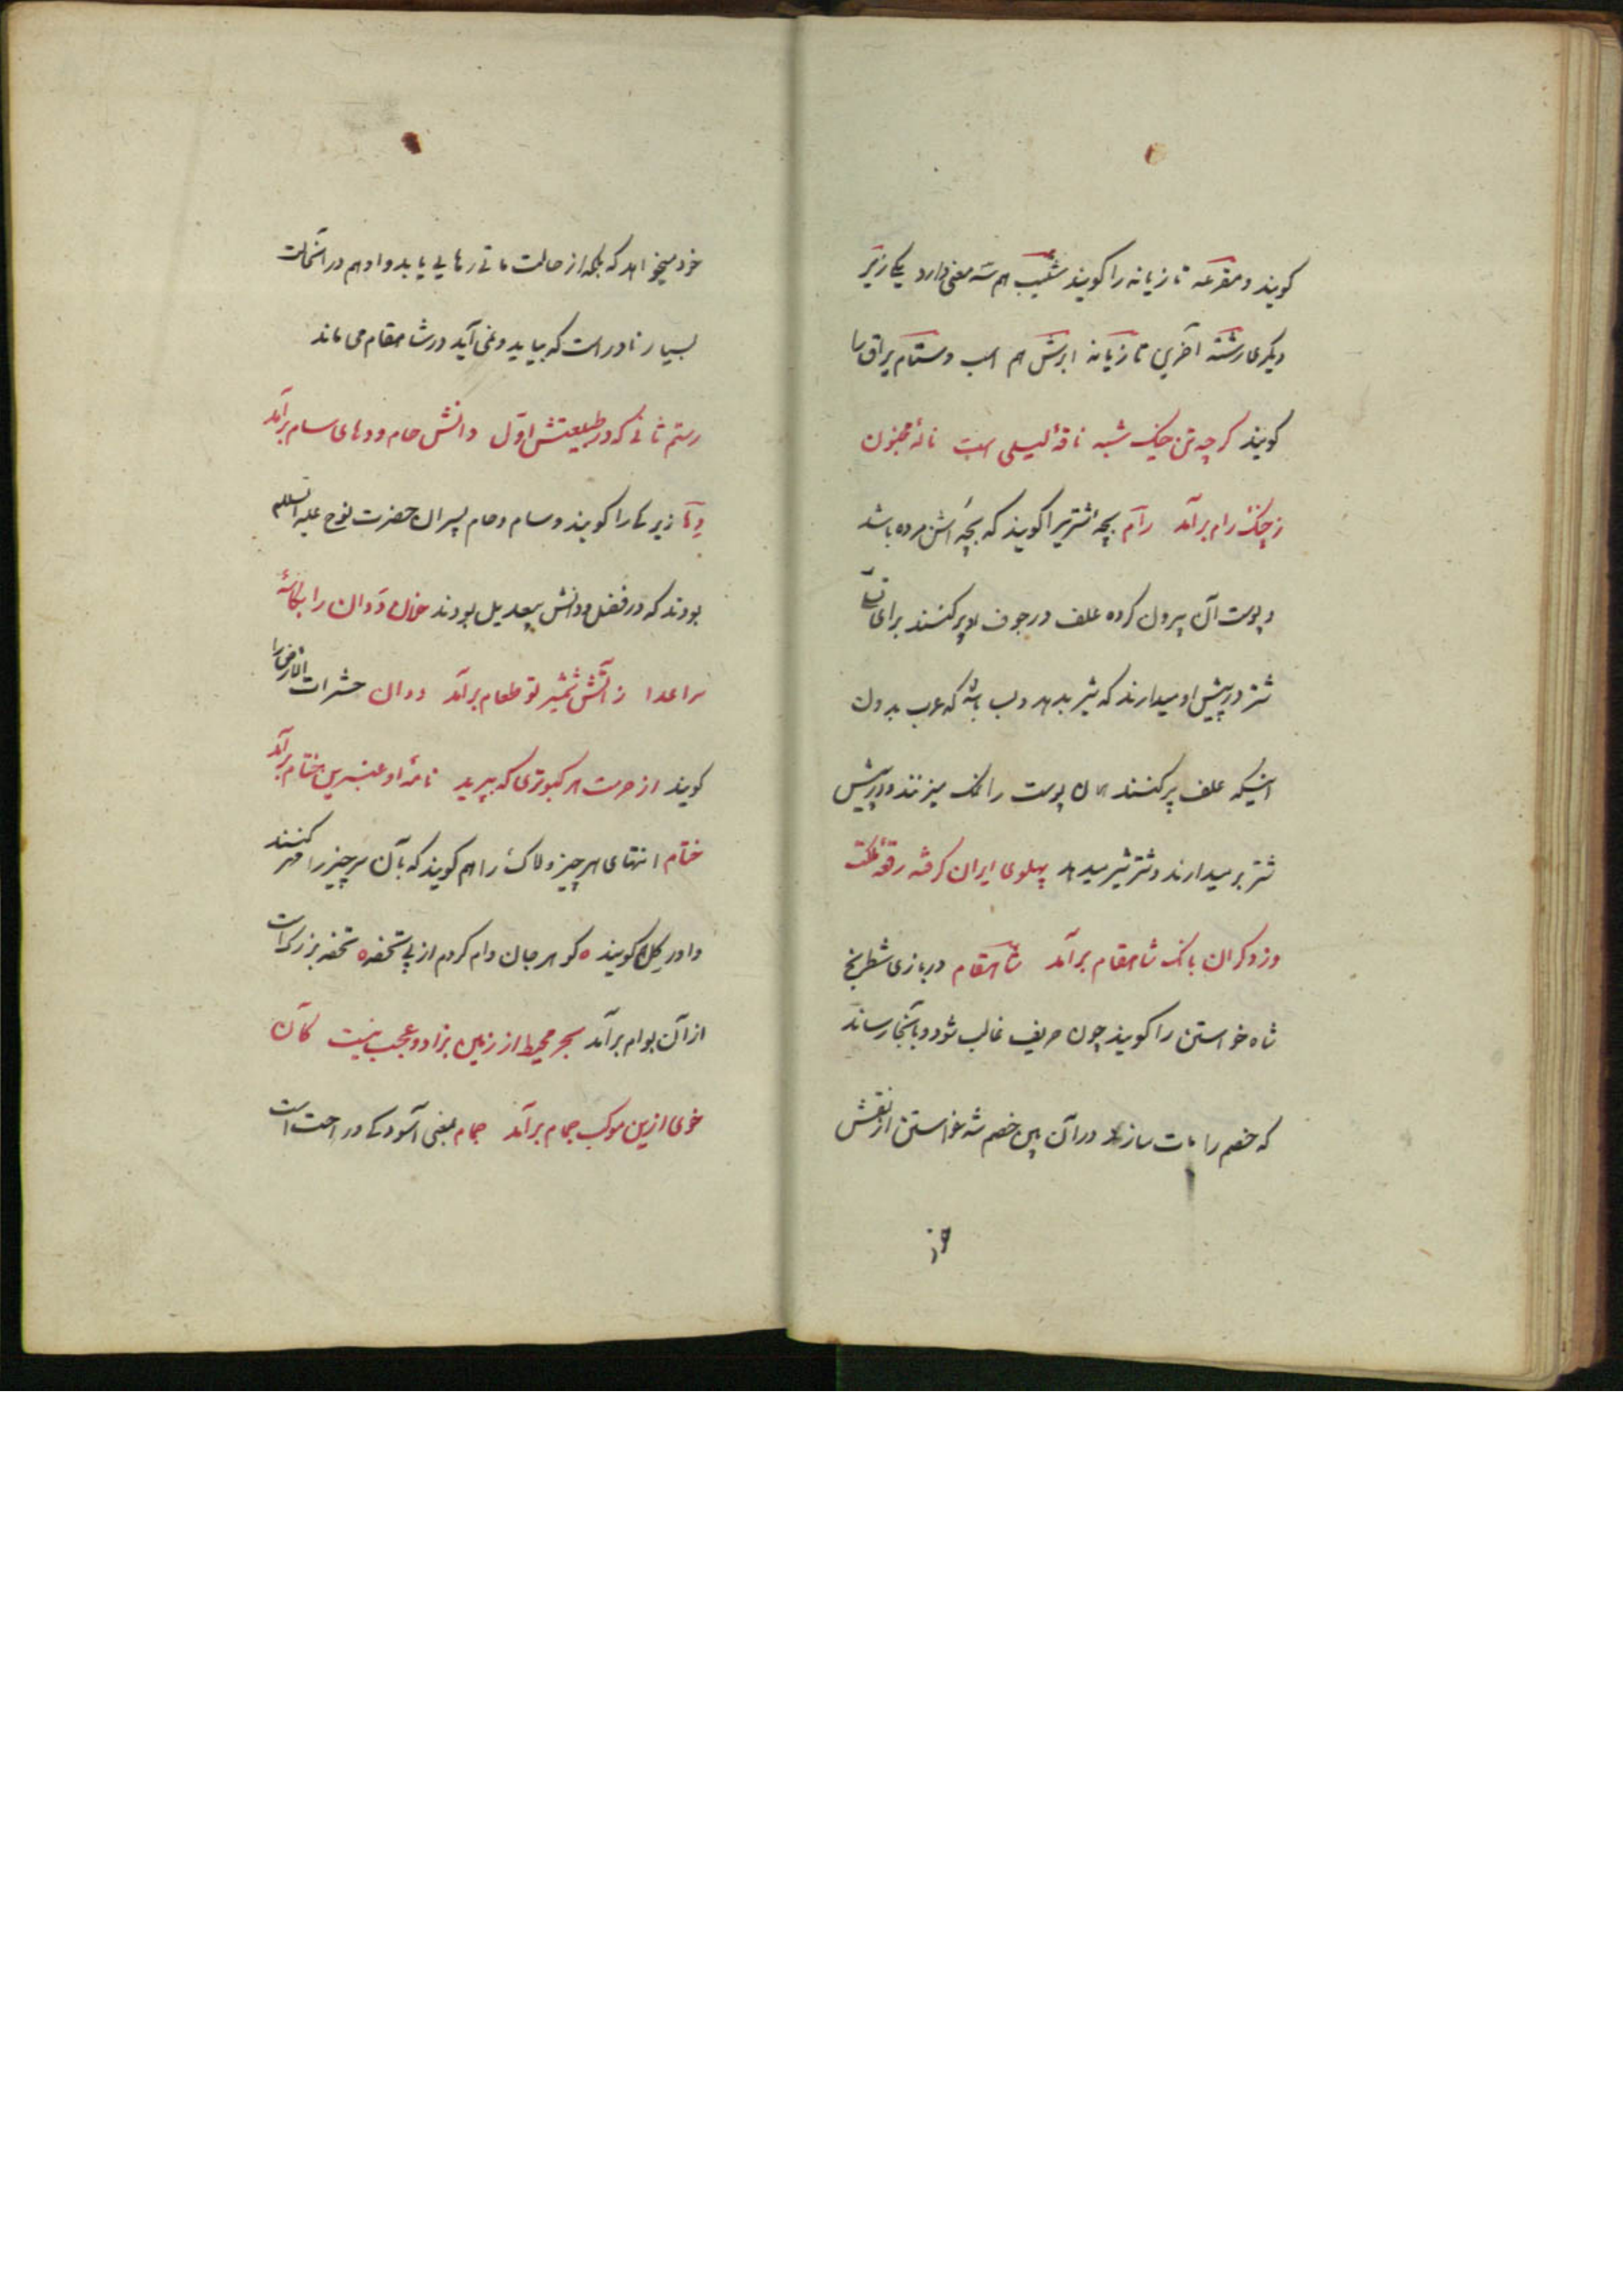 کویند و مقرعه تازیانه را کویند شیب هم سه معنی دارد یکی زیر
دیکری رشته آخرین تازیانه ابرش هم اسب و ستام یراق را
کویند کرچه تن چنک شبه ناقهٔ لیلی است نالهٔ مجنون
ز چنک رام برآمد رآم بچه شتریرا کویند که بچه‌اش مرده باشد
و پوست آن بیرون کرده علف در جوف او پر کنند برای
شتر در پیش او میدارند که شیر بدهد و لب باشد که عرب بدون
اینکه علف پر کنند همان پوست را نمک میزنند و در پیش
شتر بر میدارند و شتر شیر میدهد پهلوی ایران کرفته رقعهٔ ملکت
وز دکران بانک شاهقام برآمد شاهقام در بازی شطرنج
شاه خواستن را کویند چون حریف غالب شود و بآنجا رساند
که خصم را مات سازد در آن بین خصم شه خواستن از نقش
خود میخواهد که بلکه از حالت ماتی رهایی یابد و او هم در آنحالت
بسیار نادر است که بیاید و نمی آید در شاهقام می ماند
رستم ثانی که در طبیعتش اول دانش حام و دهای سام برآمد
دها زیرکی را کویند و سام و حام پسران حضرت نوح علیه السلام
بودند که در فضل و دانش بیعدیل بودند خلان ددان را بکاسهٔ
سر اعدا ز آتش شمشیر تو طعام برآمد ددان حشرات الارض را
کویند از حرمت هر کبوتری که بپرید نامهٔ او عنبرین ختام برآمد
ختام انتهای هر چیز و لاک را هم کویند که بآن سر چیز را مهر کنند
و اور کل کویند ه کوهر جان وام کردم از پی تحفه ه تحفه بزرکست
از آن بوام برآمد بحر محیط از زمین بزاد و عجب نیست کان
خوی ازین موکب جمام برآمد جمام بمعنی آسودکی و راحت است